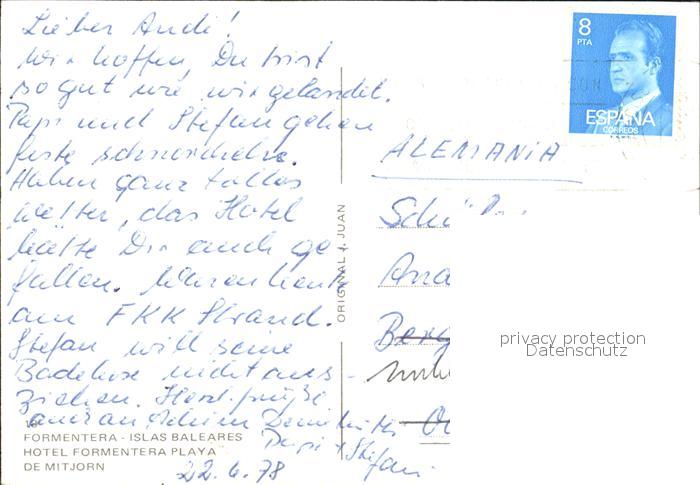 Lieber Andi!
wir hoffen, Du bist
so gut wie wir gelandet.
Papi und Stefan gehen
feste schnorcheln.
Haben ganz tolles
Wetter, das Hotel
hätte Dir auch ge-
fallen. Waren heute
am FKK Strand.
Stefan will seine
Badehose nicht aus-
ziehen. Herzl. Grüße
Papi + Stefan
22.6.78
FORMENTERA - ISLAS BALEARES
HOTEL FORMENTERA PLAYA
DE MITJORN
ORIGINAL J. JUAN
8
PTA
ESPAÑA
CORREOS
ALEMANIA
privacy protection
Datenschutz